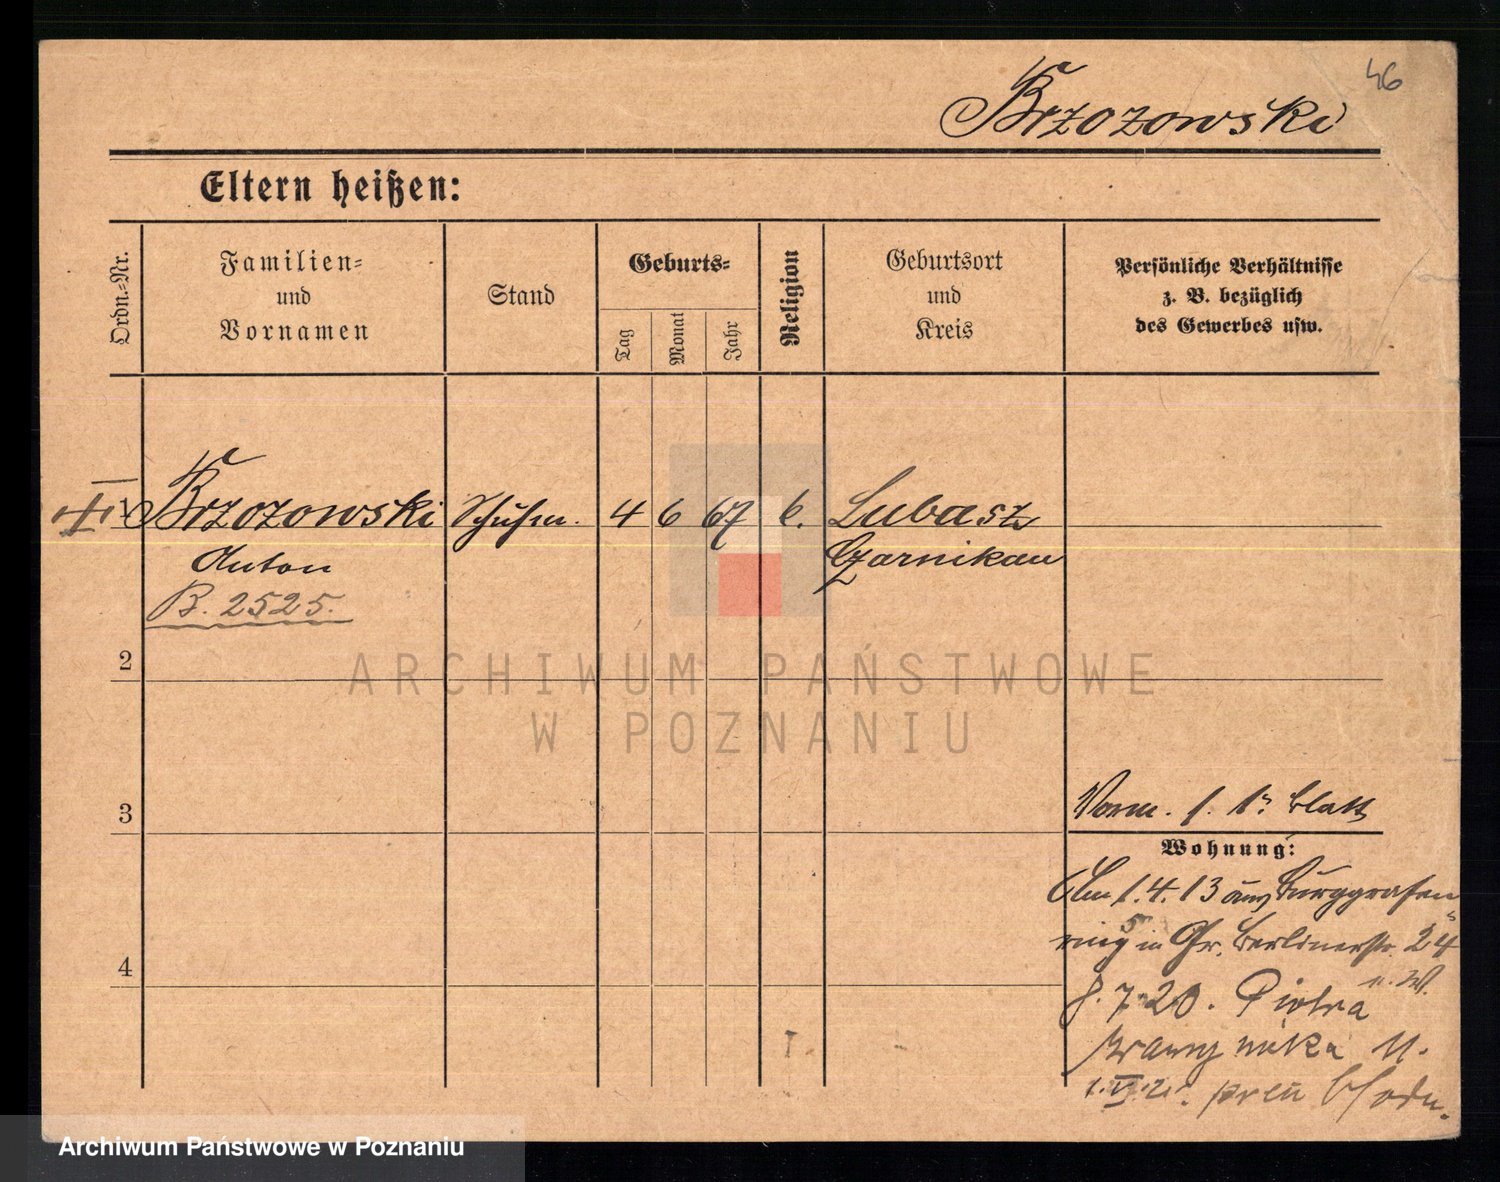 46
Brzozowski
Eltern heißen:
Ordn.-Nr.
Familien-
und
Vornamen
Stand
Geburts-
Tag
Monat
Jahr
Religion
Geburtsort
und
Kreis
Persönliche Verhältnisse
z. B. bezüglich
des Gewerbes usw.
1
Brzozowski
Anton
B. 2525.
Schuhm.
4
6
67
k.
Lubasz
Czarnikau
2
ARCHIWUM PAŃSTWOWE
W POZNANIU
3
Blatt
Wohnung:
1.4.13 Burggrafen
ring 5 in Gr. Berlinerstr. 24
7 20. Piotra
Wawrzyniaka 11.
Archiwum Państwowe w Poznaniu